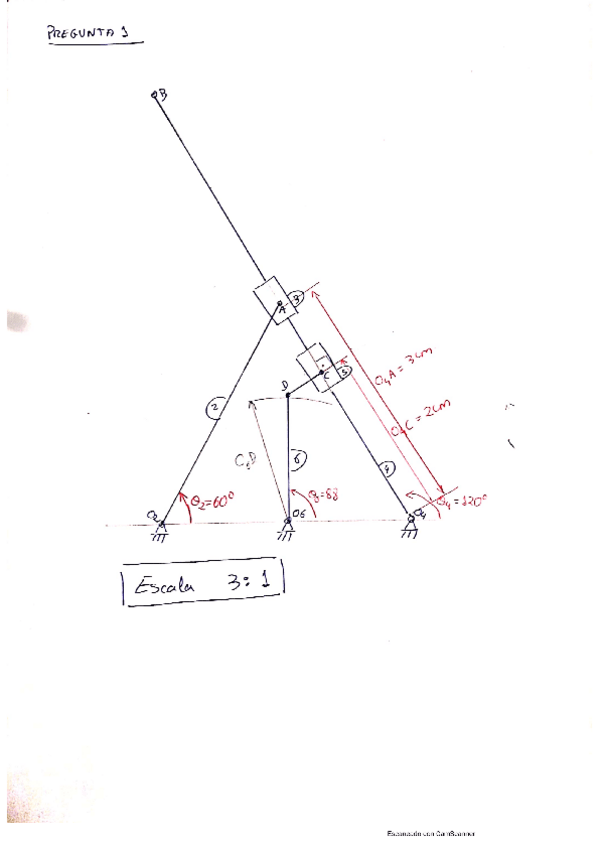 PREGUNTA 1
B
A
3
O4A = 3cm
C
5
D
O4C = 2cm
2
C6D
6
4
θ2=60°
θ=88
θ4=120°
O2
O6
O4
Escala 3:1
Escaneado con CamScanner